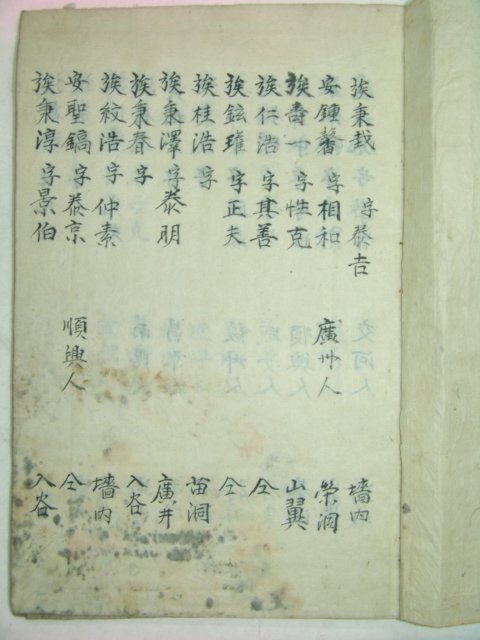 族秉哉 字泰吉 墻內
安鍾馨 字相和 廣州人 榮洞
族壽一 字性克 山翼
族仁浩 字其善 仝
族鉉瓘 字正夫 仝
族桂浩 字 苗洞
族秉澤 字泰明 廣井
族秉春 字 入谷
族紋浩 字仲素 墻內
安聖鎬 字泰京 順興人 仝
族秉淳 字景伯 入谷